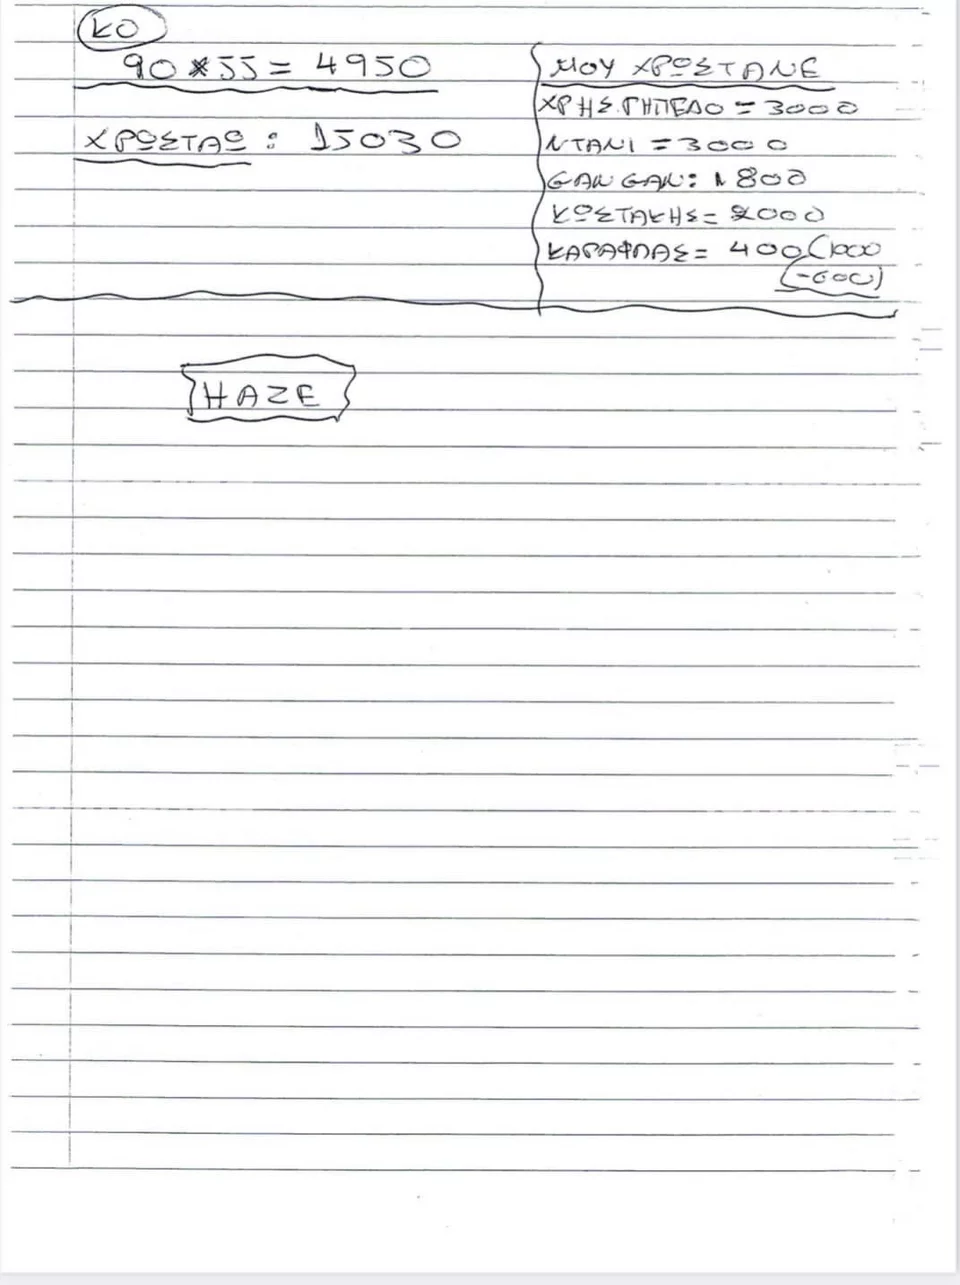 ΚΟ
90 * 55 = 4950
ΧΡΩΣΤΑΩ : 15030
ΜΟΥ ΧΡΩΣΤΑΝΕ
ΧΡΗΣ. ΓΗΠΕΔΟ = 3000
ΝΤΑΝΙ = 3000
GAN GAN: 1800
ΚΩΣΤΑΚΗΣ = 2000
ΚΑΡΑΦΛΑΣ = 400 (1000
-600)
HAZE